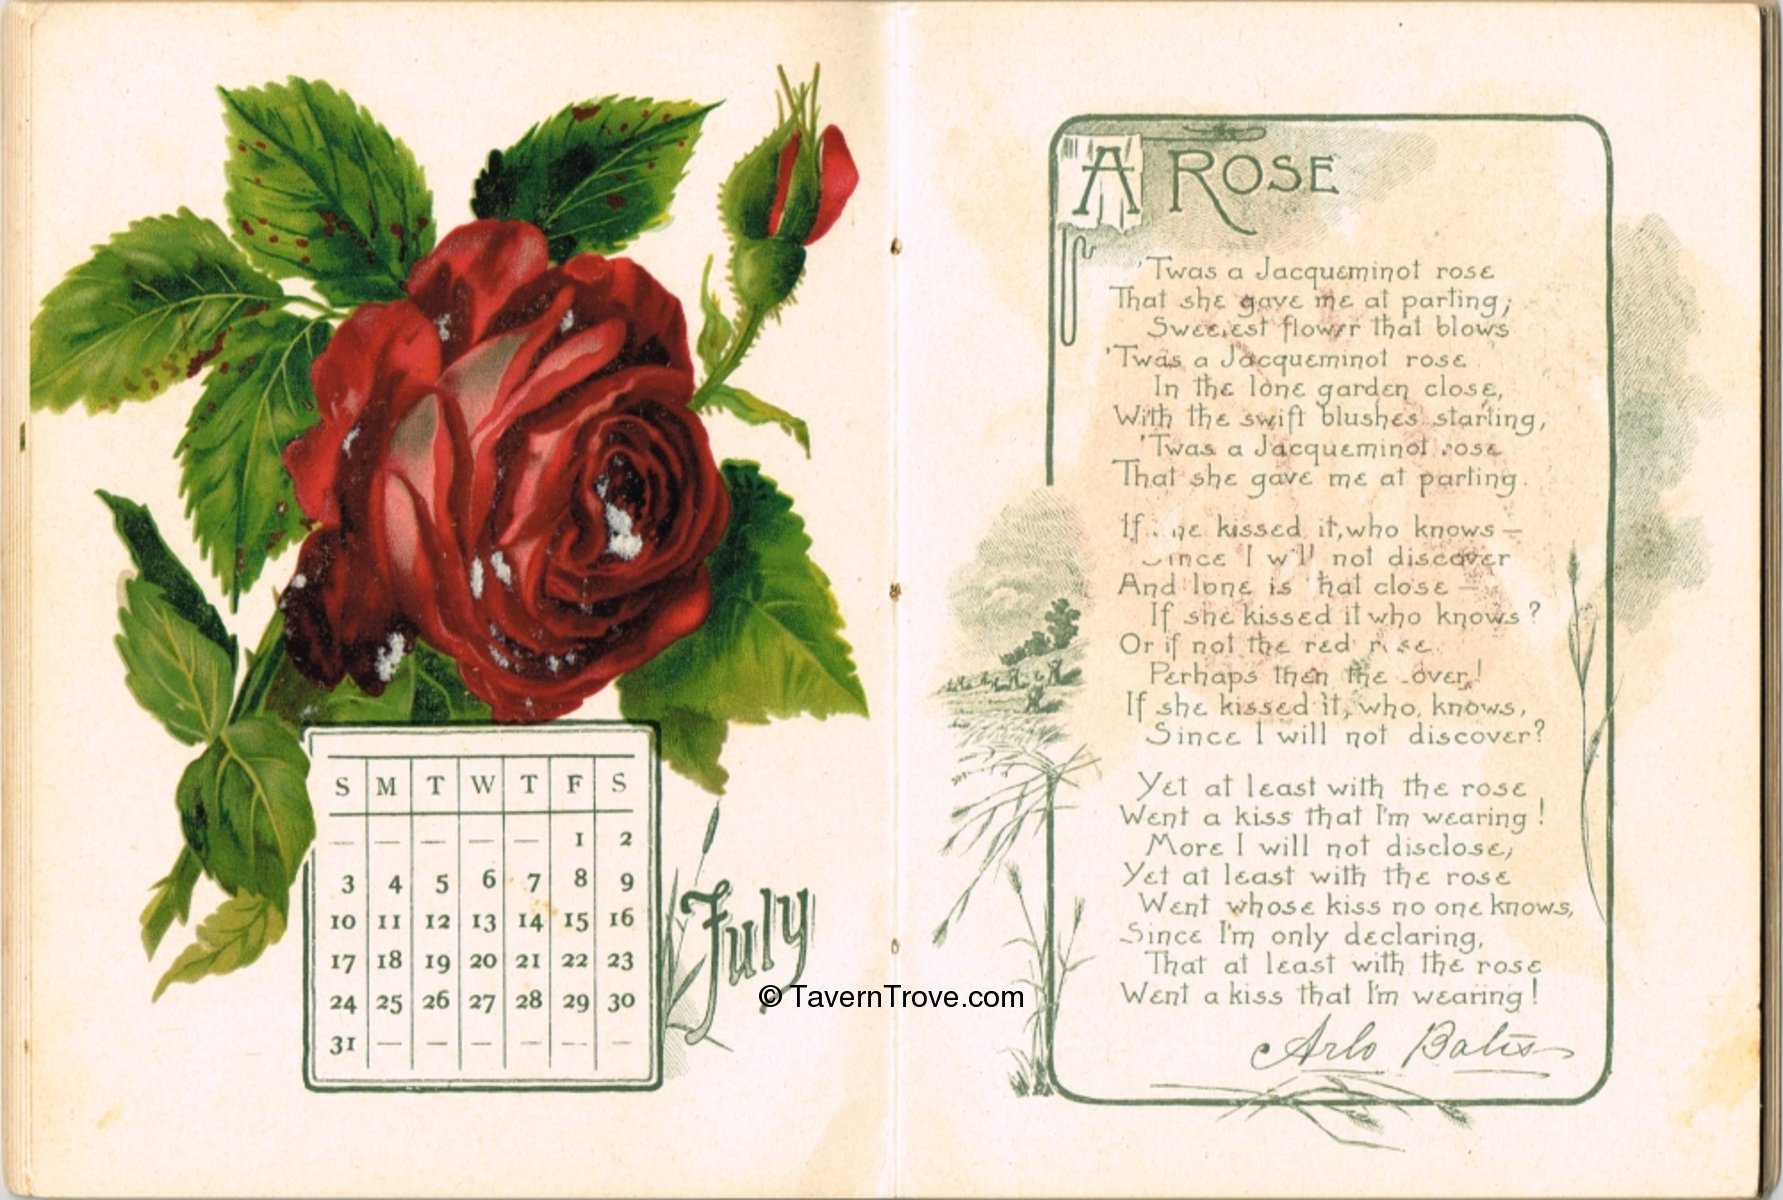 S M T W T F S
— — — — — 1 2
3 4 5 6 7 8 9
10 11 12 13 14 15 16
17 18 19 20 21 22 23
24 25 26 27 28 29 30
31 — — — — — —
July
© TavernTrove.com
A ROSE
'Twas a Jacqueminot rose
That she gave me at parting;
Sweetest flower that blows
'Twas a Jacqueminot rose
In the lone garden close,
With the swift blushes starting,
'Twas a Jacqueminot rose
That she gave me at parting.
If she kissed it, who knows—
Since I will not discover
And lone is that close—
If she kissed it who knows?
Or if not the red rose
Perhaps then the lover!
If she kissed it, who knows,
Since I will not discover?
Yet at least with the rose
Went a kiss that I'm wearing!
More I will not disclose;
Yet at least with the rose
Went whose kiss no one knows,
Since I'm only declaring,
That at least with the rose
Went a kiss that I'm wearing!
Arlo Bates